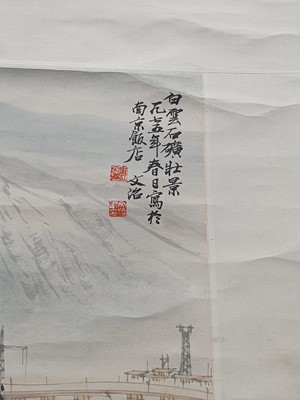 白雲石礦壯景
一九七五年春日寫於
南京飯店 文治